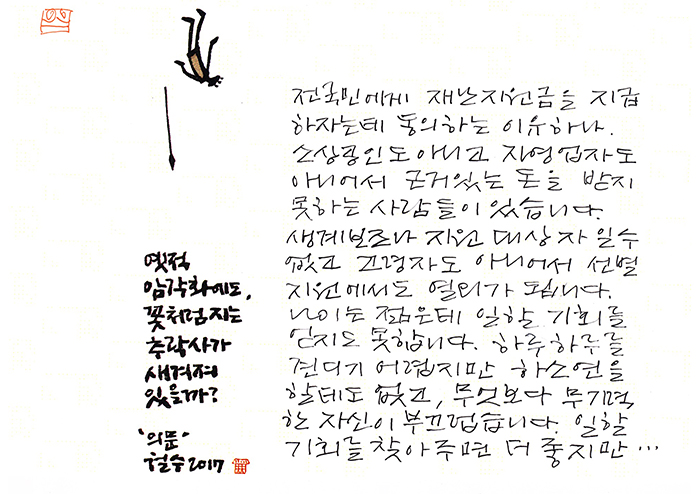 옛적
암각화에도,
꽃처럼지는
추락사가
새겨져
있을까?
"의문"
철수2017
전국민에게 재난지원금을 지급
하자는데 동의하는 이유하나.
소상공인도아니고 자영업자도
아니어서 근거있는 돈을 받지
못하는 사람들이 있습니다.
생계보조나 지원 대상자일수
없고 고령자도 아니어서 선별
지원에서도 열외가 됩니다.
나이는 젊은데 일할 기회를
얻지도 못합니다. 하루하루를
견디기 어렵지만 하소연을
할데도 없고, 무엇보다 무기력
한 자신이 부끄럽습니다. 일할
기회를 찾아주면 더 좋지만…